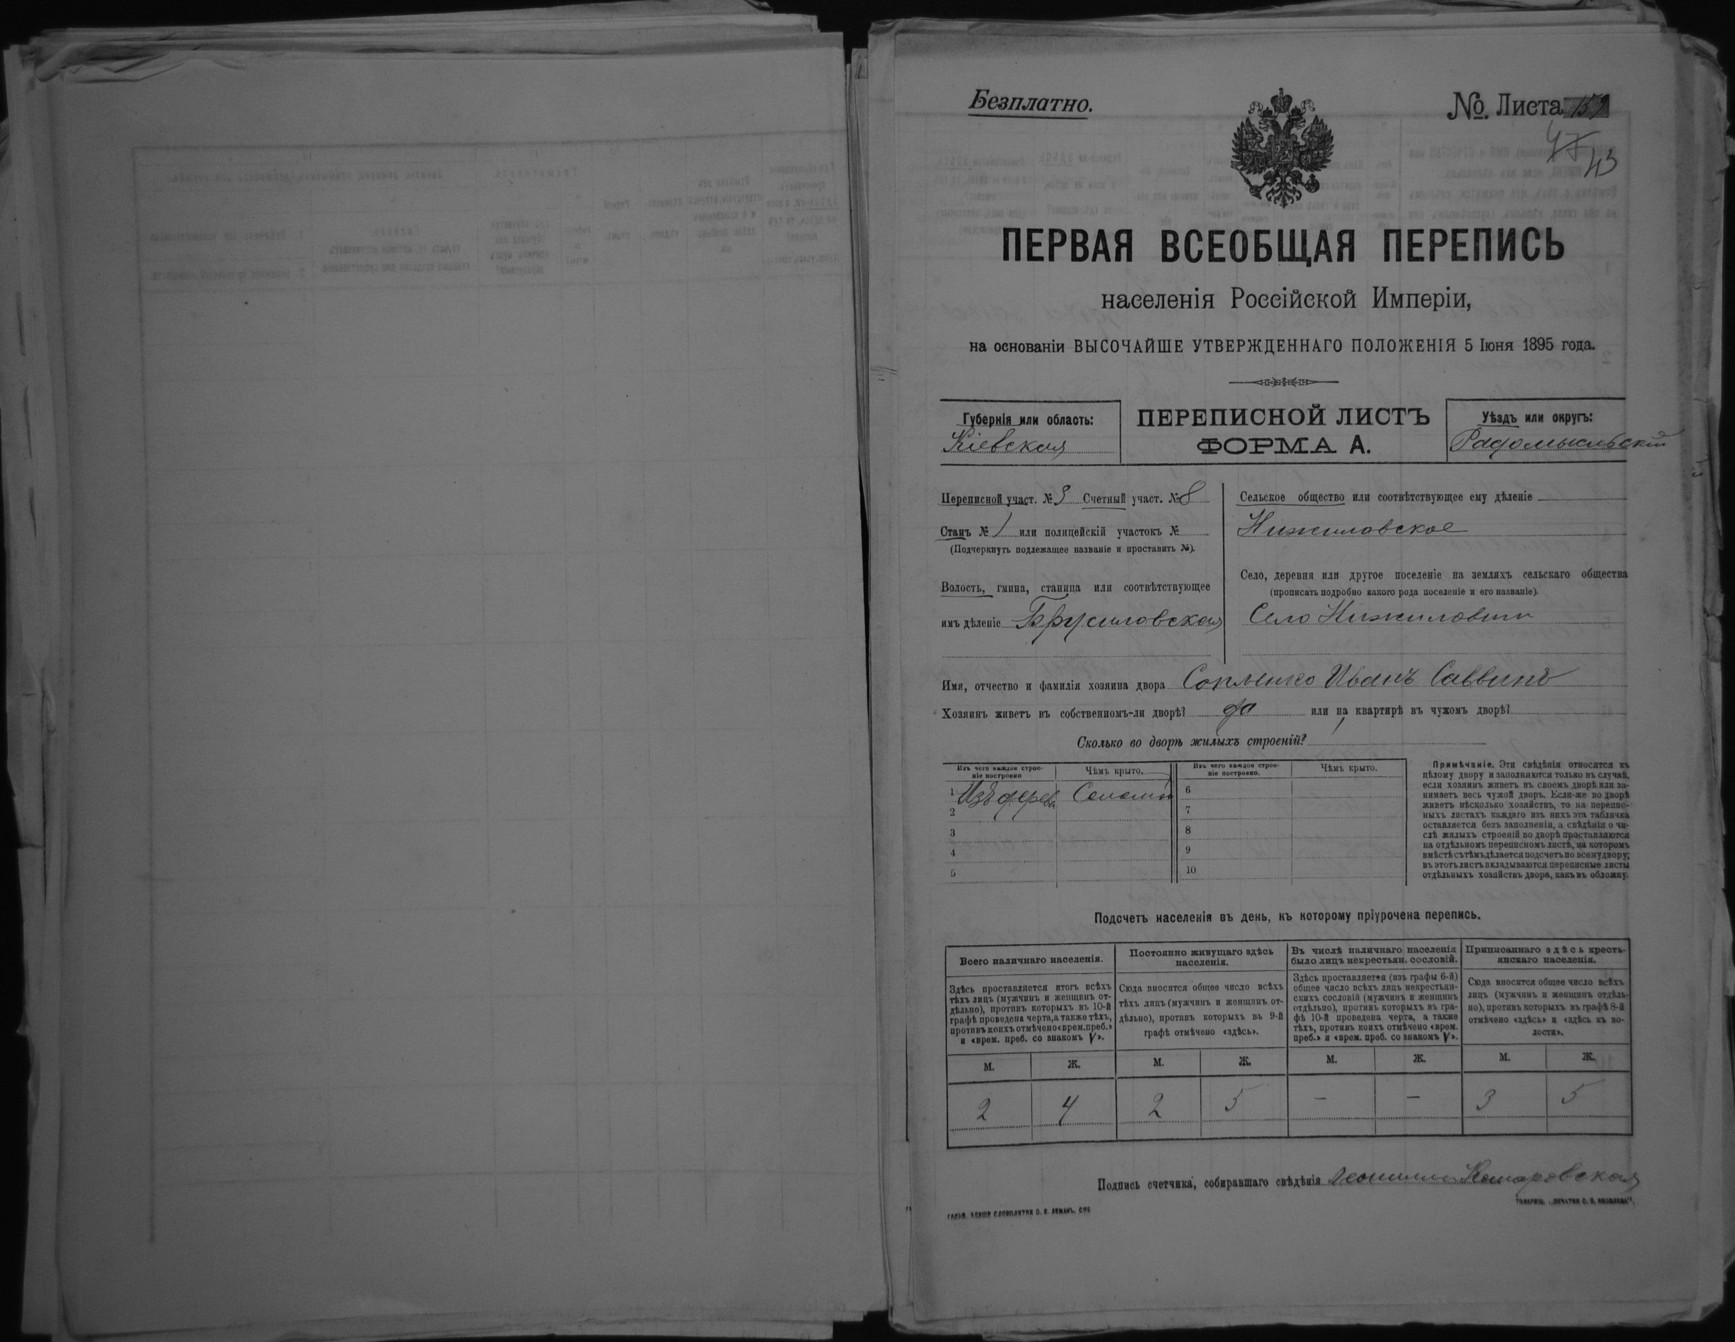 Безплатно.
№ Листа
47
43
ПЕРВАЯ ВСЕОБЩАЯ ПЕРЕПИСЬ
населенія Россійской Имперіи,
на основаніи ВЫСОЧАЙШЕ УТВЕРЖДЕННАГО ПОЛОЖЕНІЯ 5 Іюня 1895 года.
Губернія или область:
Кіевская
ПЕРЕПИСНОЙ ЛИСТЪ
ФОРМА А.
Уѣздъ или округъ:
Радомысльскій
Переписной участ. № 3 Счетный участ. № 8
Станъ № 1 или полицейскій участокъ №
(Подчеркнуть подлежащее названіе и проставить №).
Волость, гмина, станица или соотвѣтствующее
имъ дѣленіе Брусиловская
Сельское общество или соотвѣтствующее ему дѣленіе
Нижиловское
Село, деревня или другое поселеніе на земляхъ сельскаго общества
(прописать подробно какого рода поселеніе и его названіе).
Село Нижиловичи
Имя, отчество и фамилія хозяина двора Иванъ Саввинъ
Хозяинъ живетъ въ собственномъ-ли дворѣ? да или на квартирѣ въ чужомъ дворѣ?
Сколько во дворѣ жилыхъ строеній? 1
Изъ чего каждое строеніе построено
Чѣмъ крыто.
Изъ чего каждое строеніе построено.
Чѣмъ крыто.
1 Изъ дерева Соломой
2
3
4
5
6
7
8
9
10
Примѣчаніе. Эти свѣдѣнія относятся къ
цѣлому двору и заполняются только въ случаѣ,
если хозяинъ живетъ въ своемъ дворѣ или занимаетъ
весь чужой дворъ. Если-же во дворѣ
живетъ нѣсколько хозяйствъ, то на переписныхъ
листахъ каждаго изъ нихъ эта табличка
оставляется безъ заполненія, а свѣдѣнія о числѣ
жилыхъ строеній во дворѣ проставляются
на отдѣльномъ переписномъ листѣ, на которомъ
вмѣстѣ съ тѣмъ дѣлается подсчетъ по всему двору;
въ этотъ листъ вкладываются переписные листы
отдѣльныхъ хозяйствъ двора, какъ въ обложку.
Подсчетъ населенія въ день, къ которому пріурочена перепись.
Всего наличнаго населенія.
Постоянно живущаго здѣсь
населенія.
Въ числѣ наличнаго населенія
было лицъ некрестьян. сословій.
Приписаннаго здѣсь крестьянскаго
населенія.
Здѣсь проставляется итогъ всѣхъ
тѣхъ лицъ (мужчинъ и женщинъ отдѣльно),
противъ которыхъ въ 10-й
графѣ проведена черта, а также тѣхъ,
противъ коихъ отмѣчено «врем. преб.»
и «врем. преб. со знакомъ V».
Сюда вносится общее число всѣхъ
тѣхъ лицъ (мужчинъ и женщинъ отдѣльно),
противъ которыхъ въ 9-й
графѣ отмѣчено «здѣсь».
Здѣсь проставляется (изъ графы 6-й)
общее число всѣхъ лицъ некрестьянскихъ
сословій (мужчинъ и женщинъ
отдѣльно), противъ которыхъ въ графѣ
10-й проведена черта, а также
тѣхъ, противъ коихъ отмѣчено «врем.
преб.» и «врем. преб. со знакомъ V».
Сюда вносится общее число всѣхъ
лицъ (мужчинъ и женщинъ отдѣльно),
противъ которыхъ въ графѣ 8-й
отмѣчено «здѣсь» и «здѣсь въ волости».
М. Ж. М. Ж. М. Ж. М. Ж.
2 4 2 5 – – 3 5
Подпись счетчика, собиравшаго свѣдѣнія Комаровская